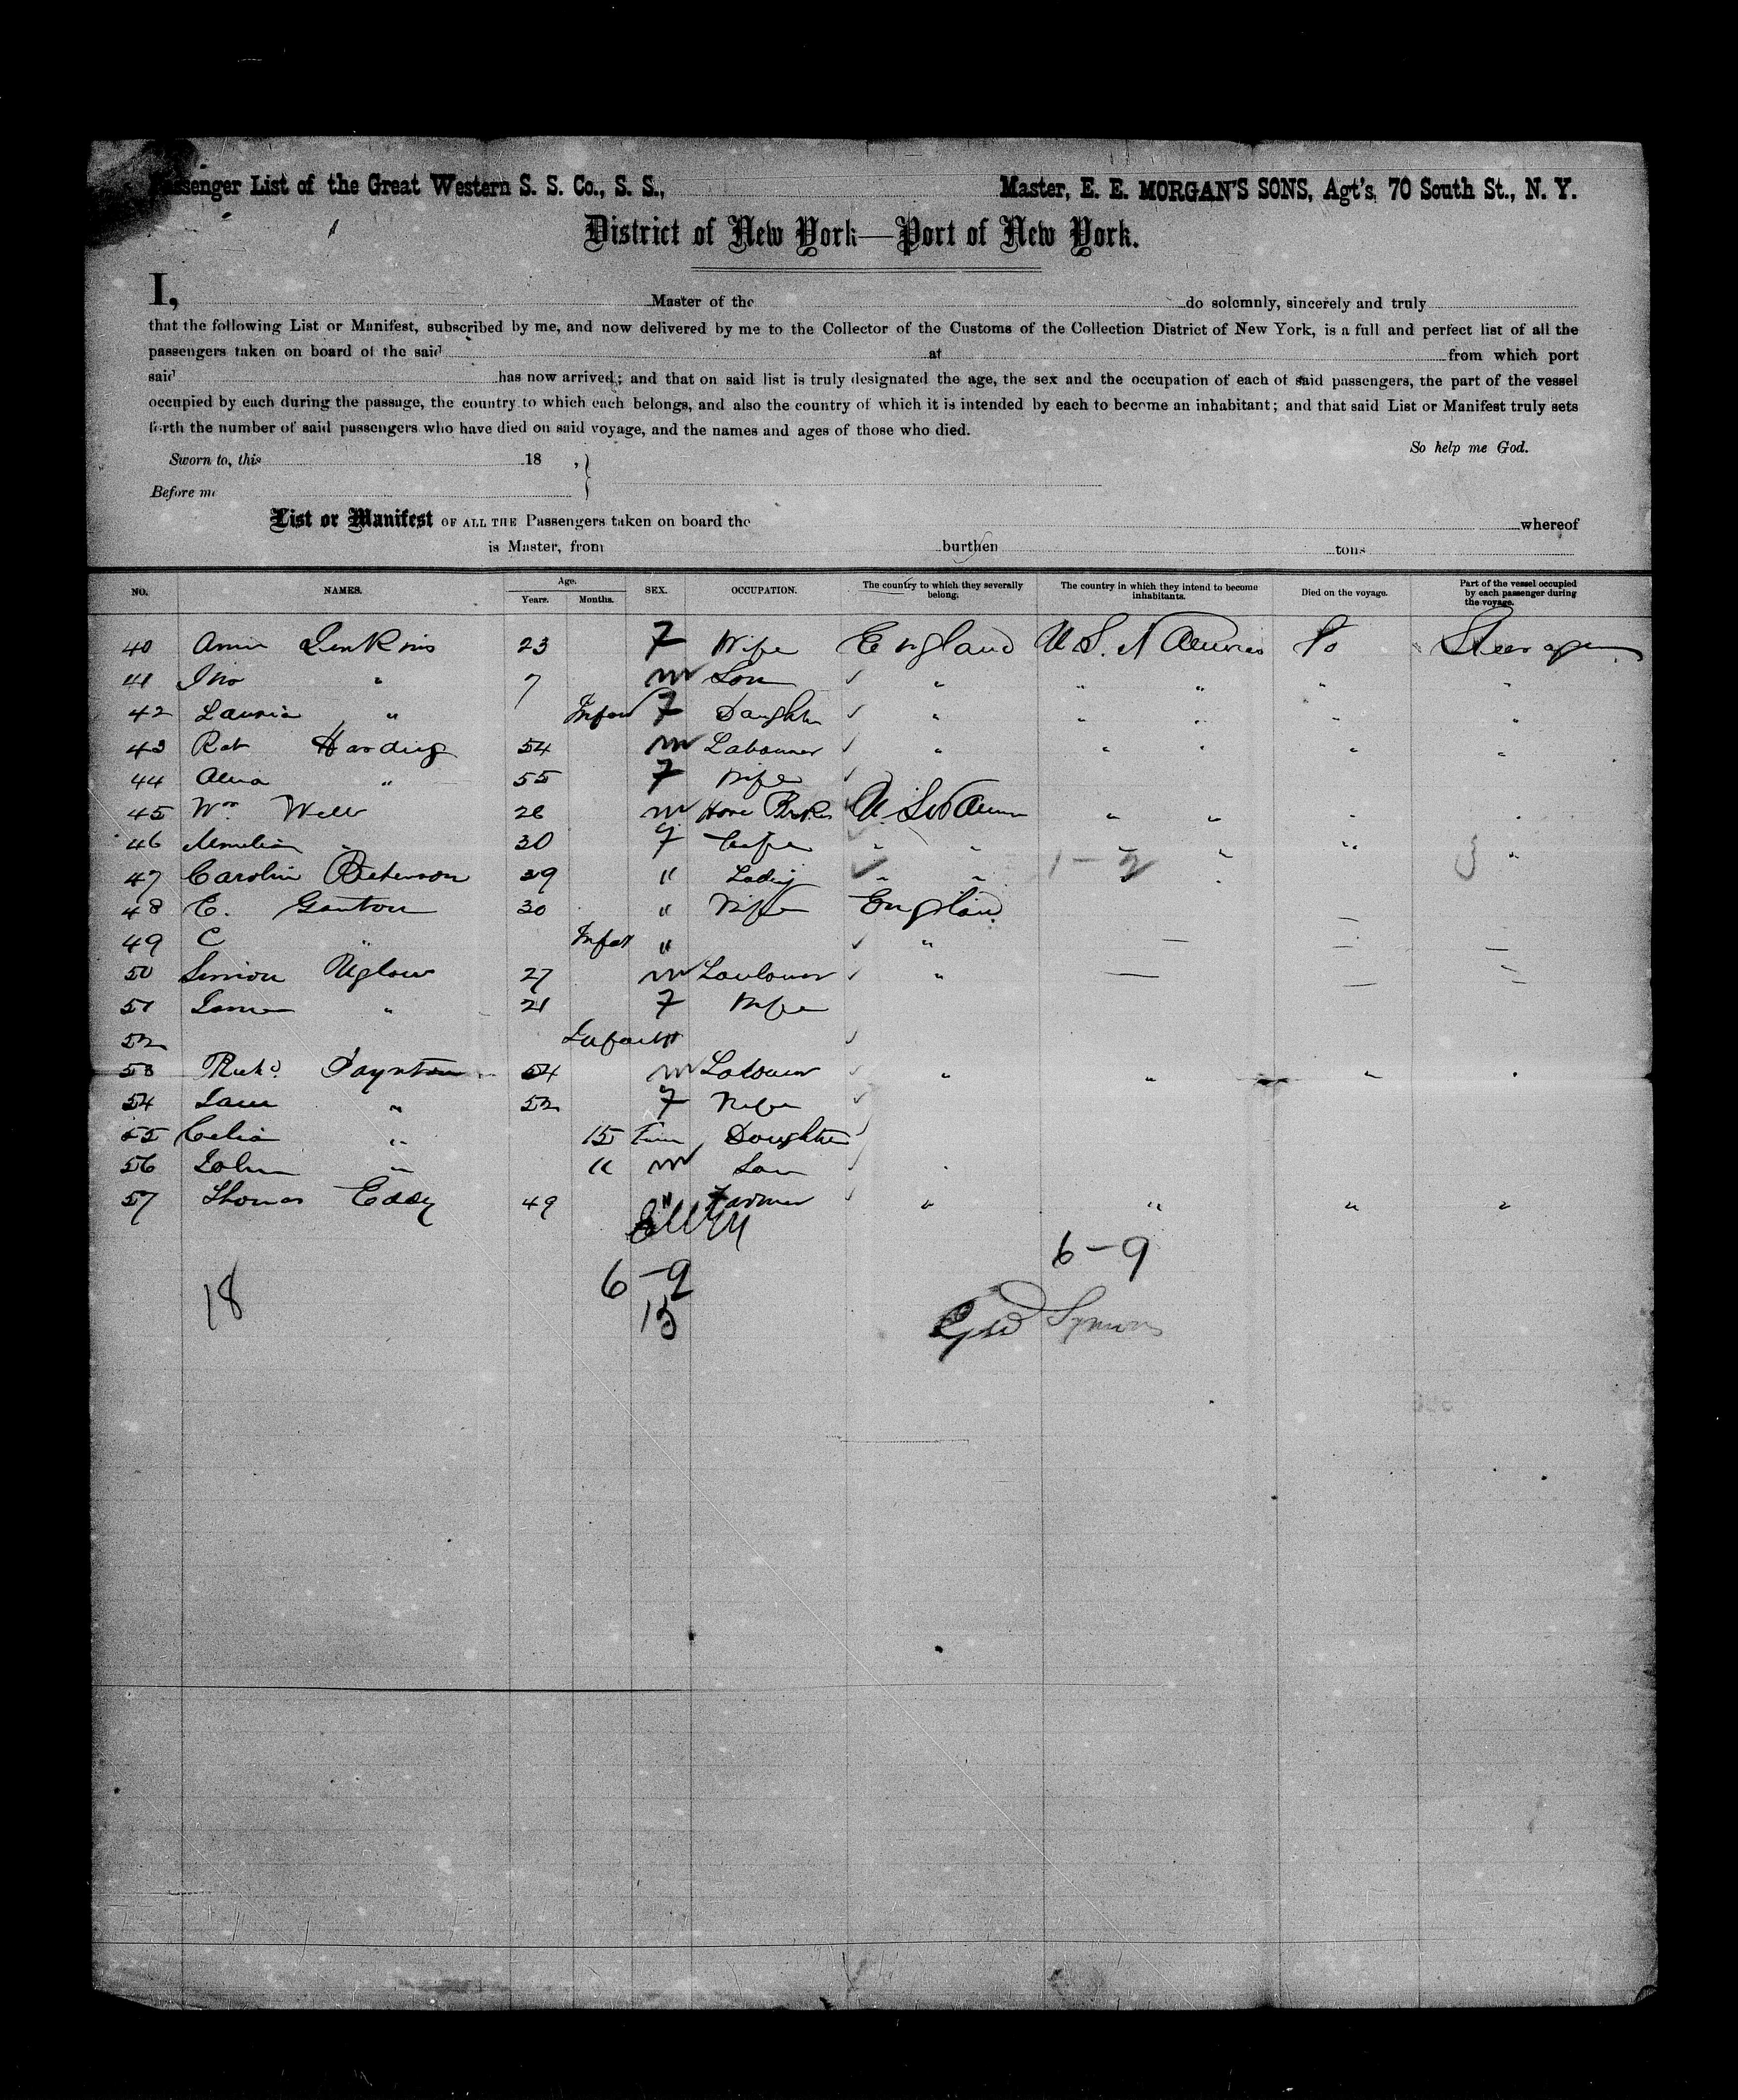 Passenger List of the Great Western S. S. Co., S. S., Master, E. E. MORGAN'S SONS, Agt's, 70 South St., N. Y.
District of New York—Port of New York.
I, Master of the do solemnly, sincerely and truly
that the following List or Manifest, subscribed by me, and now delivered by me to the Collector of the Customs of the Collection District of New York, is a full and perfect list of all the
passengers taken on board of the said at from which port
said has now arrived; and that on said list is truly designated the age, the sex and the occupation of each of said passengers, the part of the vessel
occupied by each during the passage, the country to which each belongs, and also the country of which it is intended by each to become an inhabitant; and that said List or Manifest truly sets
forth the number of said passengers who have died on said voyage, and the names and ages of those who died.
So help me God.
Sworn to, this 18 ,
Before me
List or Manifest OF ALL THE Passengers taken on board the whereof
is Master, from burthen tons
NO. NAMES. Age. Years. Months. SEX. OCCUPATION. The country to which they severally belong. The country in which they intend to become inhabitants. Died on the voyage. Part of the vessel occupied by each passenger during the voyage.
40 Jenkins 23 F Wife England U S. N America No Steerage
41 Jno " 7 m Son " " " " "
42 " Infant F Daughter " " " " "
43 Rob Harding 54 m Labourer " " " " "
44 " 55 F Wife
45 Wm Well 26 m U. S N Amer " " " "
46 " 30 F Wife " " " " " "
47 Caroline 29 " " " 1-2
48 E. Ganton 30 " Wife England
49 C " Infant " "
50 Simon Uglow 27 m Labourer "
51 " 21 F Wife
52 Infant "
53 Richd Paynton 54 m Labourer " " " "
54 Jane " 52 F Wife
55 Celia " 15 Daughter
56 John " " m Son
57 Thomas Eddy 49 " Farmer " " " "
6-9
6-9
18
15
Symons